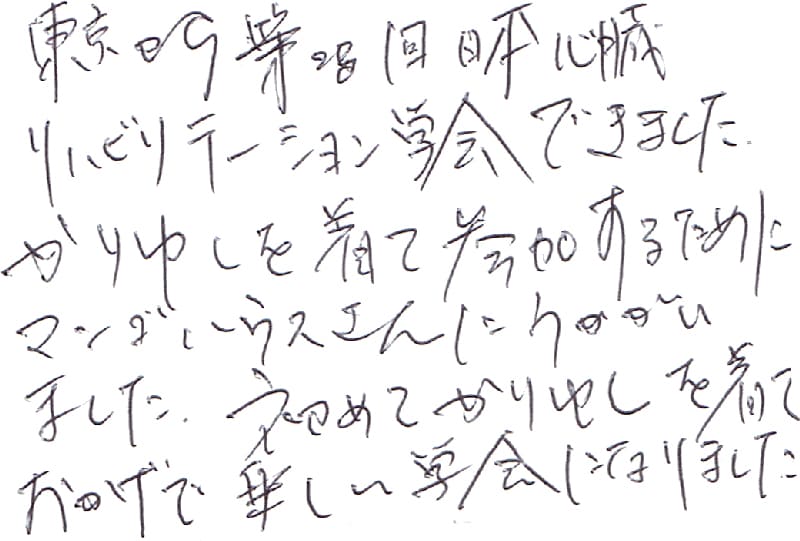 東京から第28回日本心臓
リハビリテーション学会できました。
かりゆしを着て参加するために
マンゴハウスさんにうかがい
ました。初めてかりゆしを着て
おかげで楽しい学会になりました